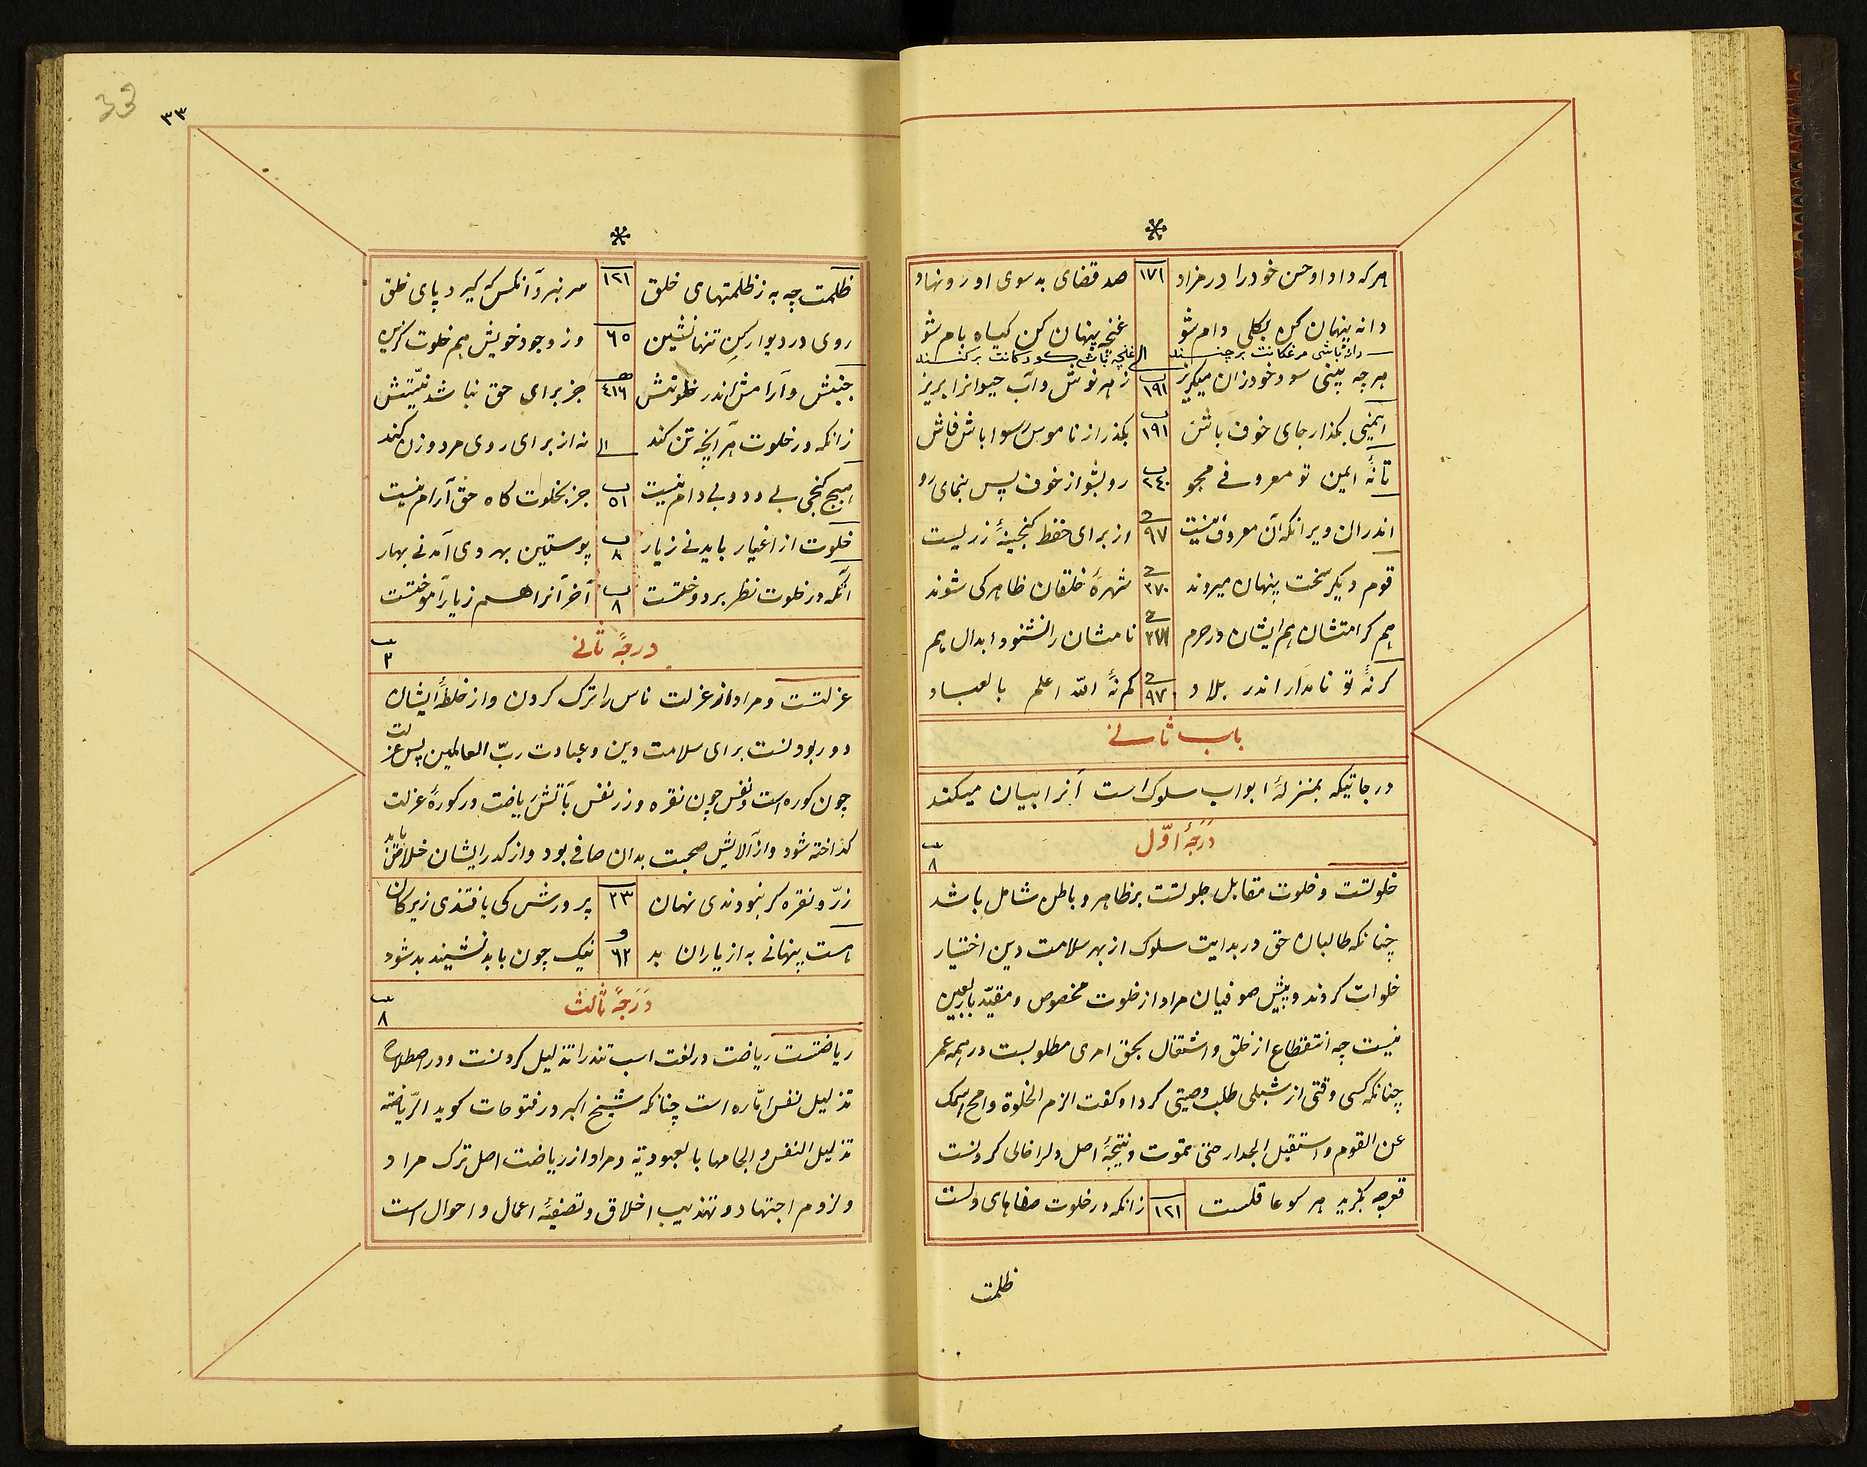 هر که داد او حسن خود را در مزاد ١٧١ صد قضای بد سوی او رو نهاد
دانه پنهان کن بکلی دام شو غنچه پنهان کن کیاه بام شو
دانه باشی مرغکانت برچنند الی غنچه باشی کودکانت برکنند
هر چه بینی سود خود زان میکریز ١٩١ زهر نوش و آب حیوانرا بریز
ایمنی بکذار جای خوف باش ١٩١ بکذر از ناموس رسوا باش فاش
تا نهٔ ایمن تو معروفی مجو ٢٤٠ رو بشو از خوف پس بنمای رو
اندران ویرانکه آن معروف نیست ٩٧ از برای حفظ کنجینهٔ زریست
قوم دیکر سخت پنهان میروند ٢٧٠ شهرهٔ خلقان ظاهر کی شوند
هم کرامتشان هم ایشان در حرم ٢٧١ نامشان را نشنود ابدال هم
کر نهٔ تو نامدار اندر بلاد ٩٧ کم نهٔ الله اعلم بالعباد
باب ثانی
درجاتیکه بمنزلهٔ ابواب سلوک است آنرا بیان میکند
درجهٔ اوّل ٨
خلوتست و خلوت مقابل جلوتست بر ظاهر و باطن شامل باشد
چنانکه طالبان حق در بدایت سلوک از بهر سلامت دین اختیار
خلوات کردند و پیش صوفیان مراد از خلوت مخصوص و مقیّد باربعین
نیست چه انقطاع از خلق و اشتغال بحق امری مطلوبست در همه عمر
چنانکه کسی وقتی از شبلی طلب وصیتی کرد او کفت الزم الخلوة وامح اسمک
عن القوم واستقبل الجدار حتی تموت و نتیجهٔ اصل دلرا خالی کردنست
قعر چه بکزید هر کو عاقلست ١٢١ زانکه در خلوت صفاهای دلست
ظلمت
33
٣٣
ظلمت چه به ز ظلمتهای خلق ١٢١ سر نبرد آنکس که کیرد پای خلق
روی در دیوار کن تنها نشین ٦٥ وز وجود خویش هم خلوت کزین
جنبش و آرامش اندر خلوتش ٤١٦ جز برای حق نباشد نیّتش
زانکه در خلوت هر آنچه تن کند الی نه از برای روی مرد و زن کند
هیچ کنجی بی دد و بی دام نیست ٥١ جز بخلوت کاه حق آرام نیست
خلوت از اغیار باید نی ز یار ٨ پوستین بهر دی آمد نی بهار
آنکه در خلوت نظر بر دوختست ٨ آخر آنرا هم ز یار آموختست
درجهٔ ثانی ٢
عزلتست و مراد از عزلت ناس را ترک کردن و از خلطهٔ ایشان
دور بودنست برای سلامت دین و عبادت ربّ العالمین پس عزلت
چون کوره است و نفس چون نقره و زر نفس بآتش ریاضت در کورهٔ عزلت
کداخته شود و از آلایش صحبت بدان صافی بود و از کدر ایشان خلاص یابد
زرّ و نقره کر نبودندی نهان ٢٣ پرورش کی یافتندی زیر کان
هست پنهانی به از یاران بد ٦٢ نیک چون با بد نشیند بد شود
درجهٔ ثالث ٨
ریاضتست ریاضت در لغت اسب تندرا تذلیل کردنست و در اصطلاح
تذلیل نفس امّاره است چنانکه شیخ اکبر در فتوحات کوید الرّیاضة
تذلیل النفس و الجامها بالعبودیّة و مراد از ریاضت اصل ترک مراد
و لزوم اجتهاد و تهذیب اخلاق و تصفیهٔ اعمال و احوال است